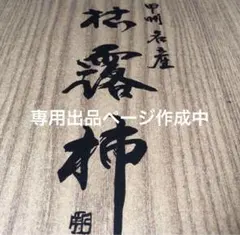 甲州名産
枯露柿
専用出品ページ作成中